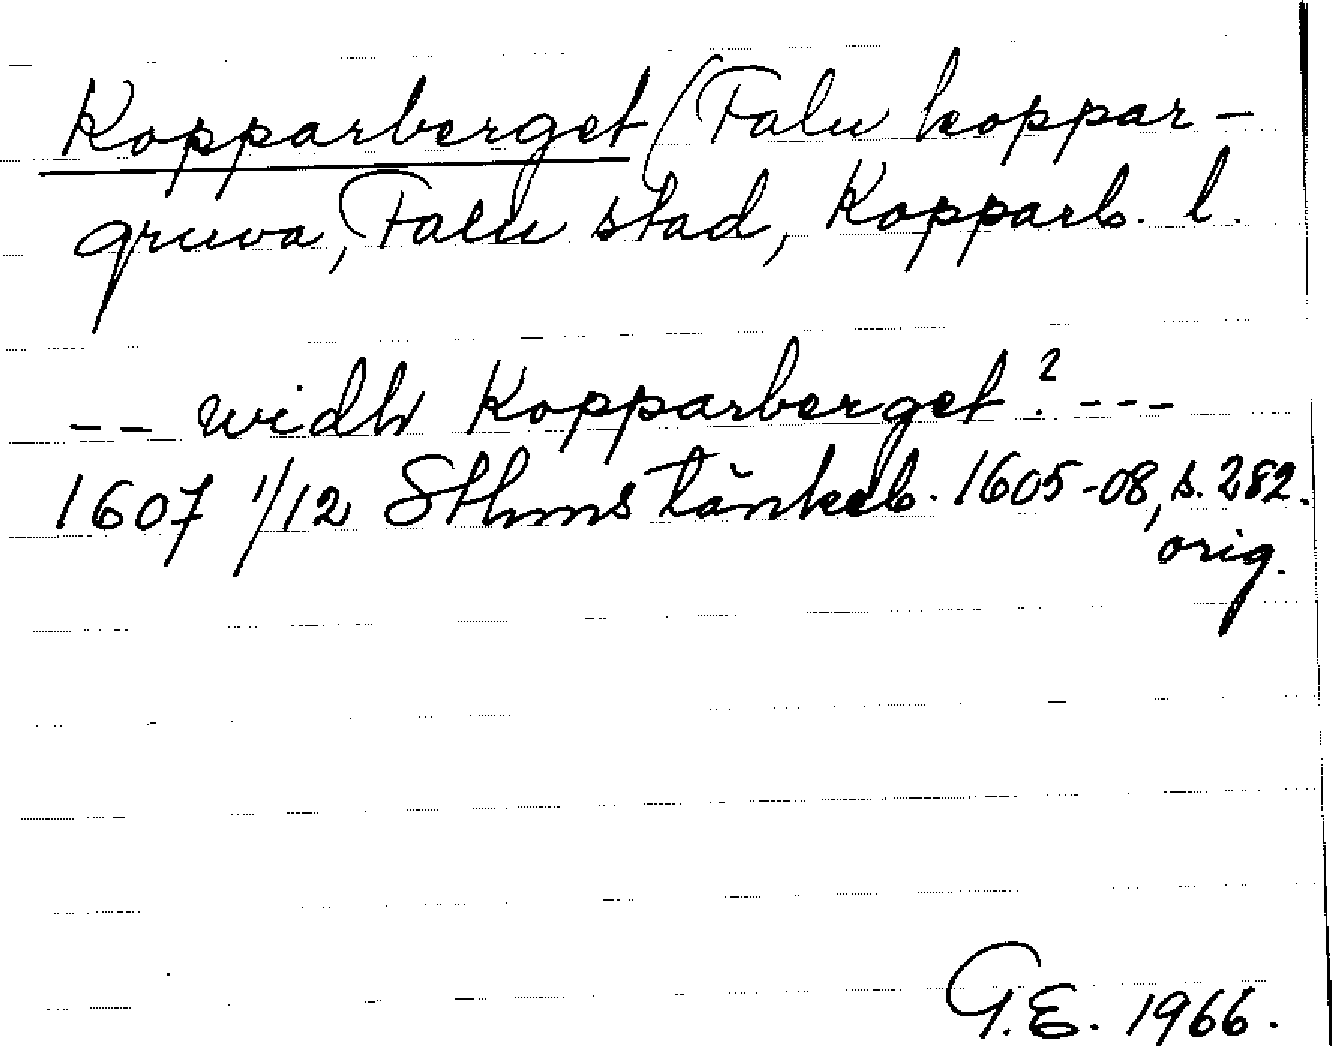 Kopparberget (Falu koppar-
gruva, Falu stad, Kopparb. l.
-- widh Kopparberget.2 ---
1607 1/12 Sthms tänkeb. 1605-08, s. 282.
orig.
G.E. 1966.